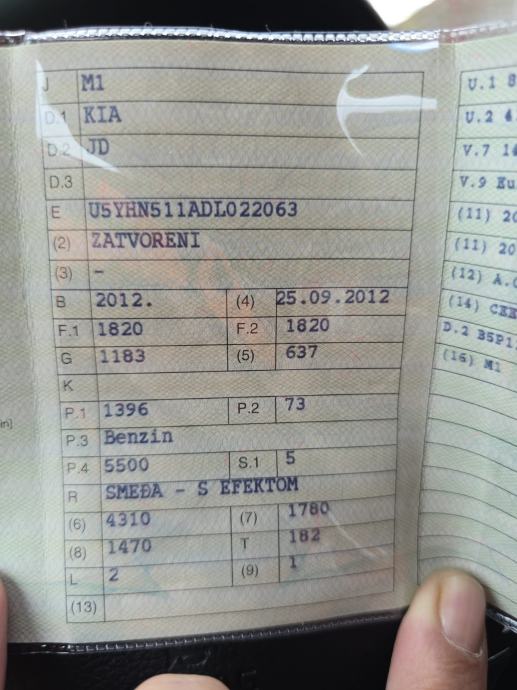 J M1
D.1 KIA
D.2 JD
D.3
E U5YHN511ADL022063
(2) ZATVORENI
(3) -
B 2012. (4) 25.09.2012
F.1 1820 F.2 1820
G 1183 (5) 637
K
P.1 1396 P.2 73
P.3 Benzin
P.4 5500 S.1 5
R SMEĐA - S EFEKTOM
(6) 4310 (7) 1780
(8) 1470 T 182
L 2 (9) 1
(13)
U.1 8
U.2 4
V.7 1
V.9 Eu
(11) 20
(11) 20
(12) A.
(14)
D.2 B5P1
(16) M1